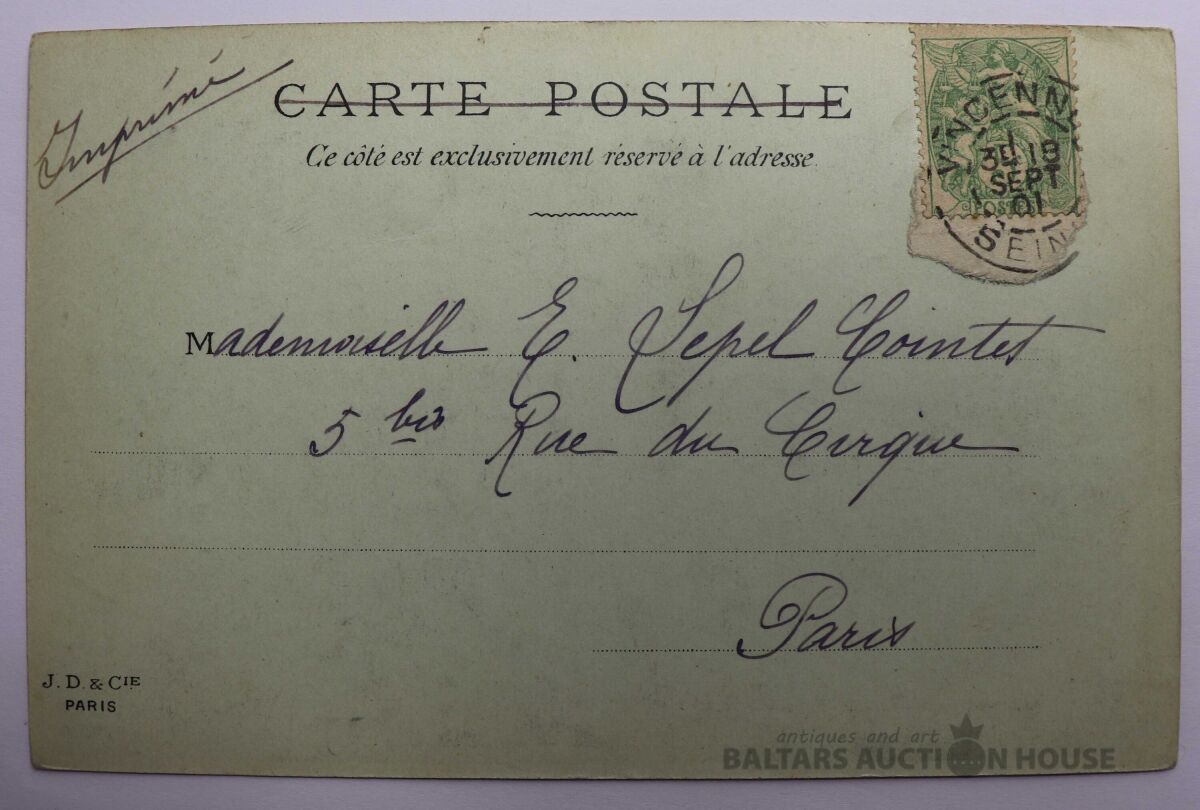 Imprimé
CARTE POSTALE
Ce côté est exclusivement réservé à l'adresse.
VINCENN
18
SEPT
01
SEIN
POSTES
Mademoiselle E. Sepel Cointet
5 bis Rue du Cirque
Paris
J. D. & CIE
PARIS
antiques and art
BALTARS AUCTION HOUSE